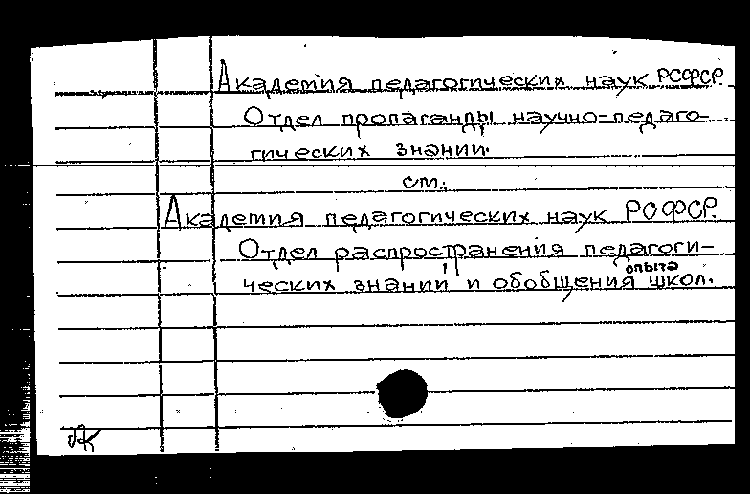 Академия педагогических наук РСФСР.
Отдел пропаганды научно-педаго-
гических знаний.
см.
Академия педагогических наук РСФСР.
Отдел распространения педагоги-
ческих знаний и обобщения опыта школ.